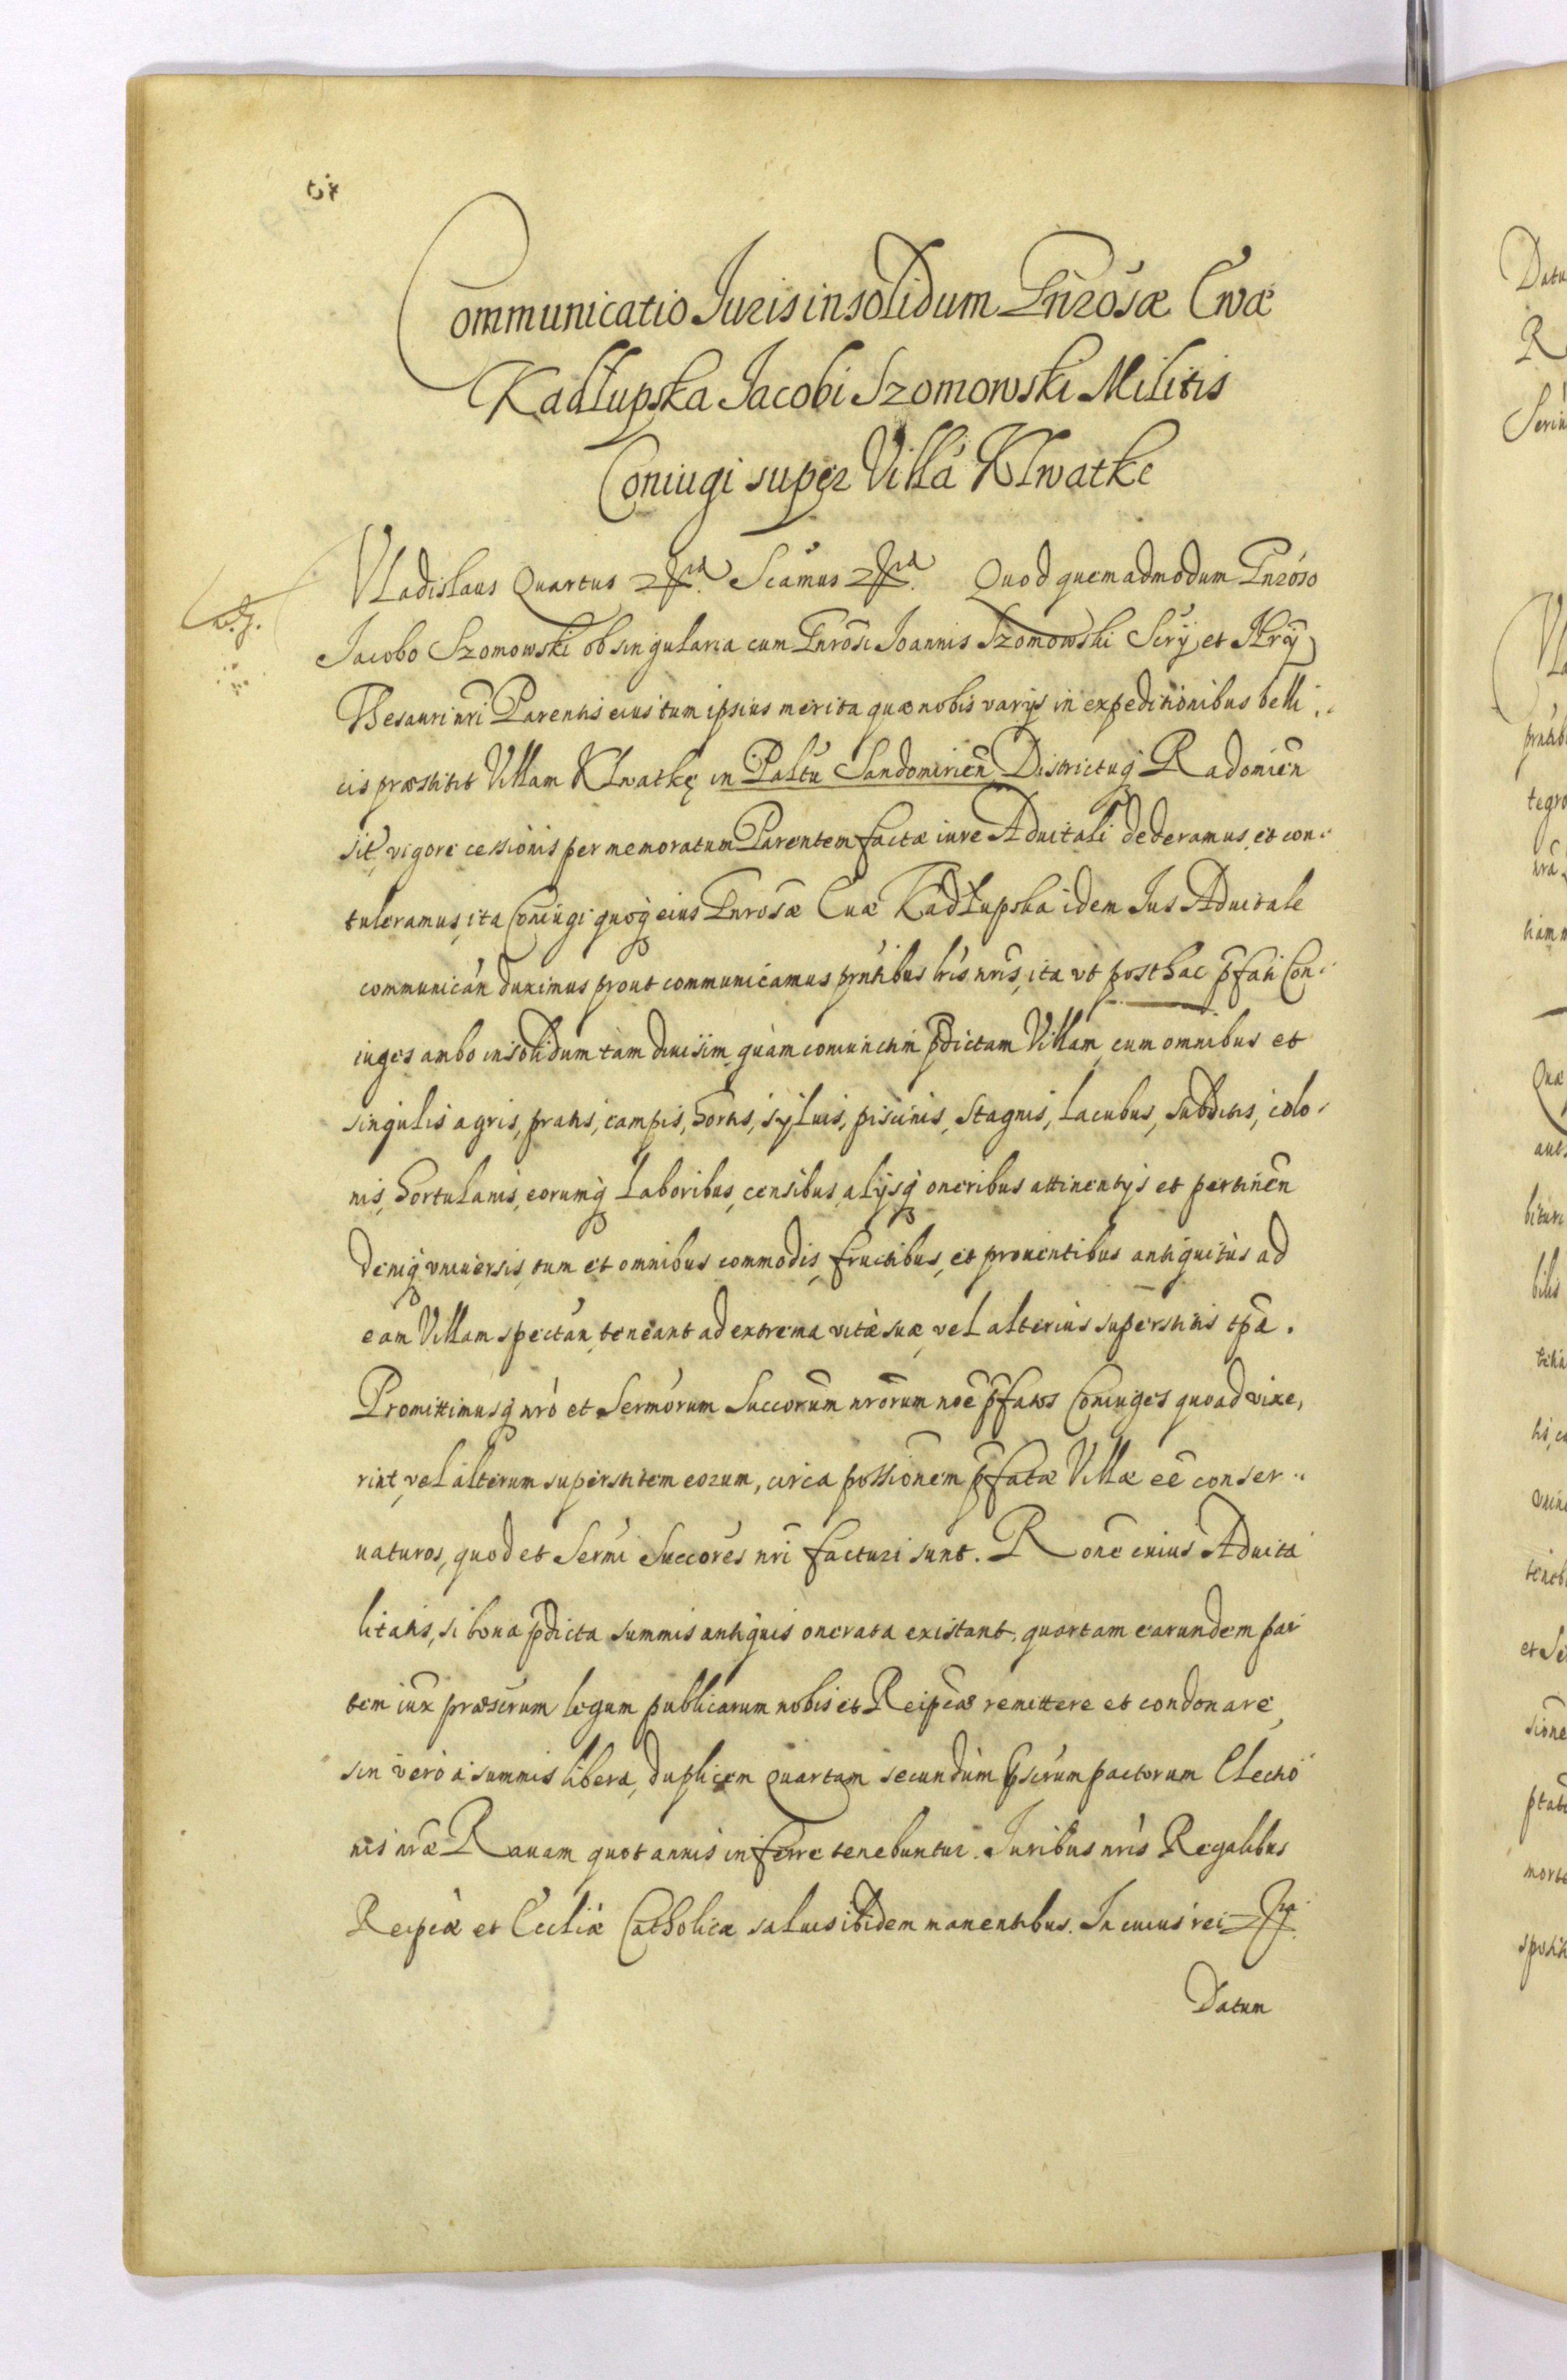 Communicatio Iuris in solidum Gnrosæ Evæ
Kadłupska Jacobi Szomowski Militis
Coniugi super Villa Klwatke
Vladislaus Quartus Scamus Quod quemadmodum Gnroso
Jacobo Szomowski ob singularia cum Gnrosi Joannis Szomowski
Thesauri nri Parentis eius tum ipsius merita quæ nobis varijs in expeditionibus belli
cis præstitit Villam Klwatkę in Paltu Sandomirien Districtuq Radomien
sit, vigore cessionis per memoratum Parentem factæ iure Aduitali dederamus, et con
tuleramus, ita Coniugi quoq eius Gnrosæ Euæ Kadłupska idem Ius Aduitale
communican duximus prout communicamus prntibus lris nris, ita vt posthac pfati Con
iuges ambo insolidum tam diuisim quàm coniunctim pdictam Villam cum omnibus et
singulis agris, pratis, campis, hortis, syluis, piscinis, stagnis, lacubus, subditis, colo
nis, hortulanis, eorumq laboribus, censibus, alijsq oneribus attinentijs et pertinen
deniq vniuersis, tum et omnibus commodis, fructibus, et prouentibus antiquitùs ad
eam Villam spectan, teneant ad extrema vitæ suæ, vel alterius superstitis tpa.
Promittimusq nro et Sermorum Succorum nrorum noe pfatos Coniuges quoad vixe,
rint, vel alterum superstitem eorum, circa possionem pfatæ Villæ eé conser
uaturos, quod et Sermi Succores nri facturi sunt. Rone cuius Aduita
litatis, si bona pdicta summis antiquis onerata existant, quartam earundem par
tem iux præscrum legum publicarum nobis et Reipcæ remittere et condonare,
sin verò a summis libera, duplicem quartam secundùm pscrum pactorum Electio
nis nræ Rauam quotannis inferre tenebuntur. Iuribus nris Regalibus
Reipcæ et Eccliæ Catholicæ saluis ibidem manentibus. In cuius rei
Datum